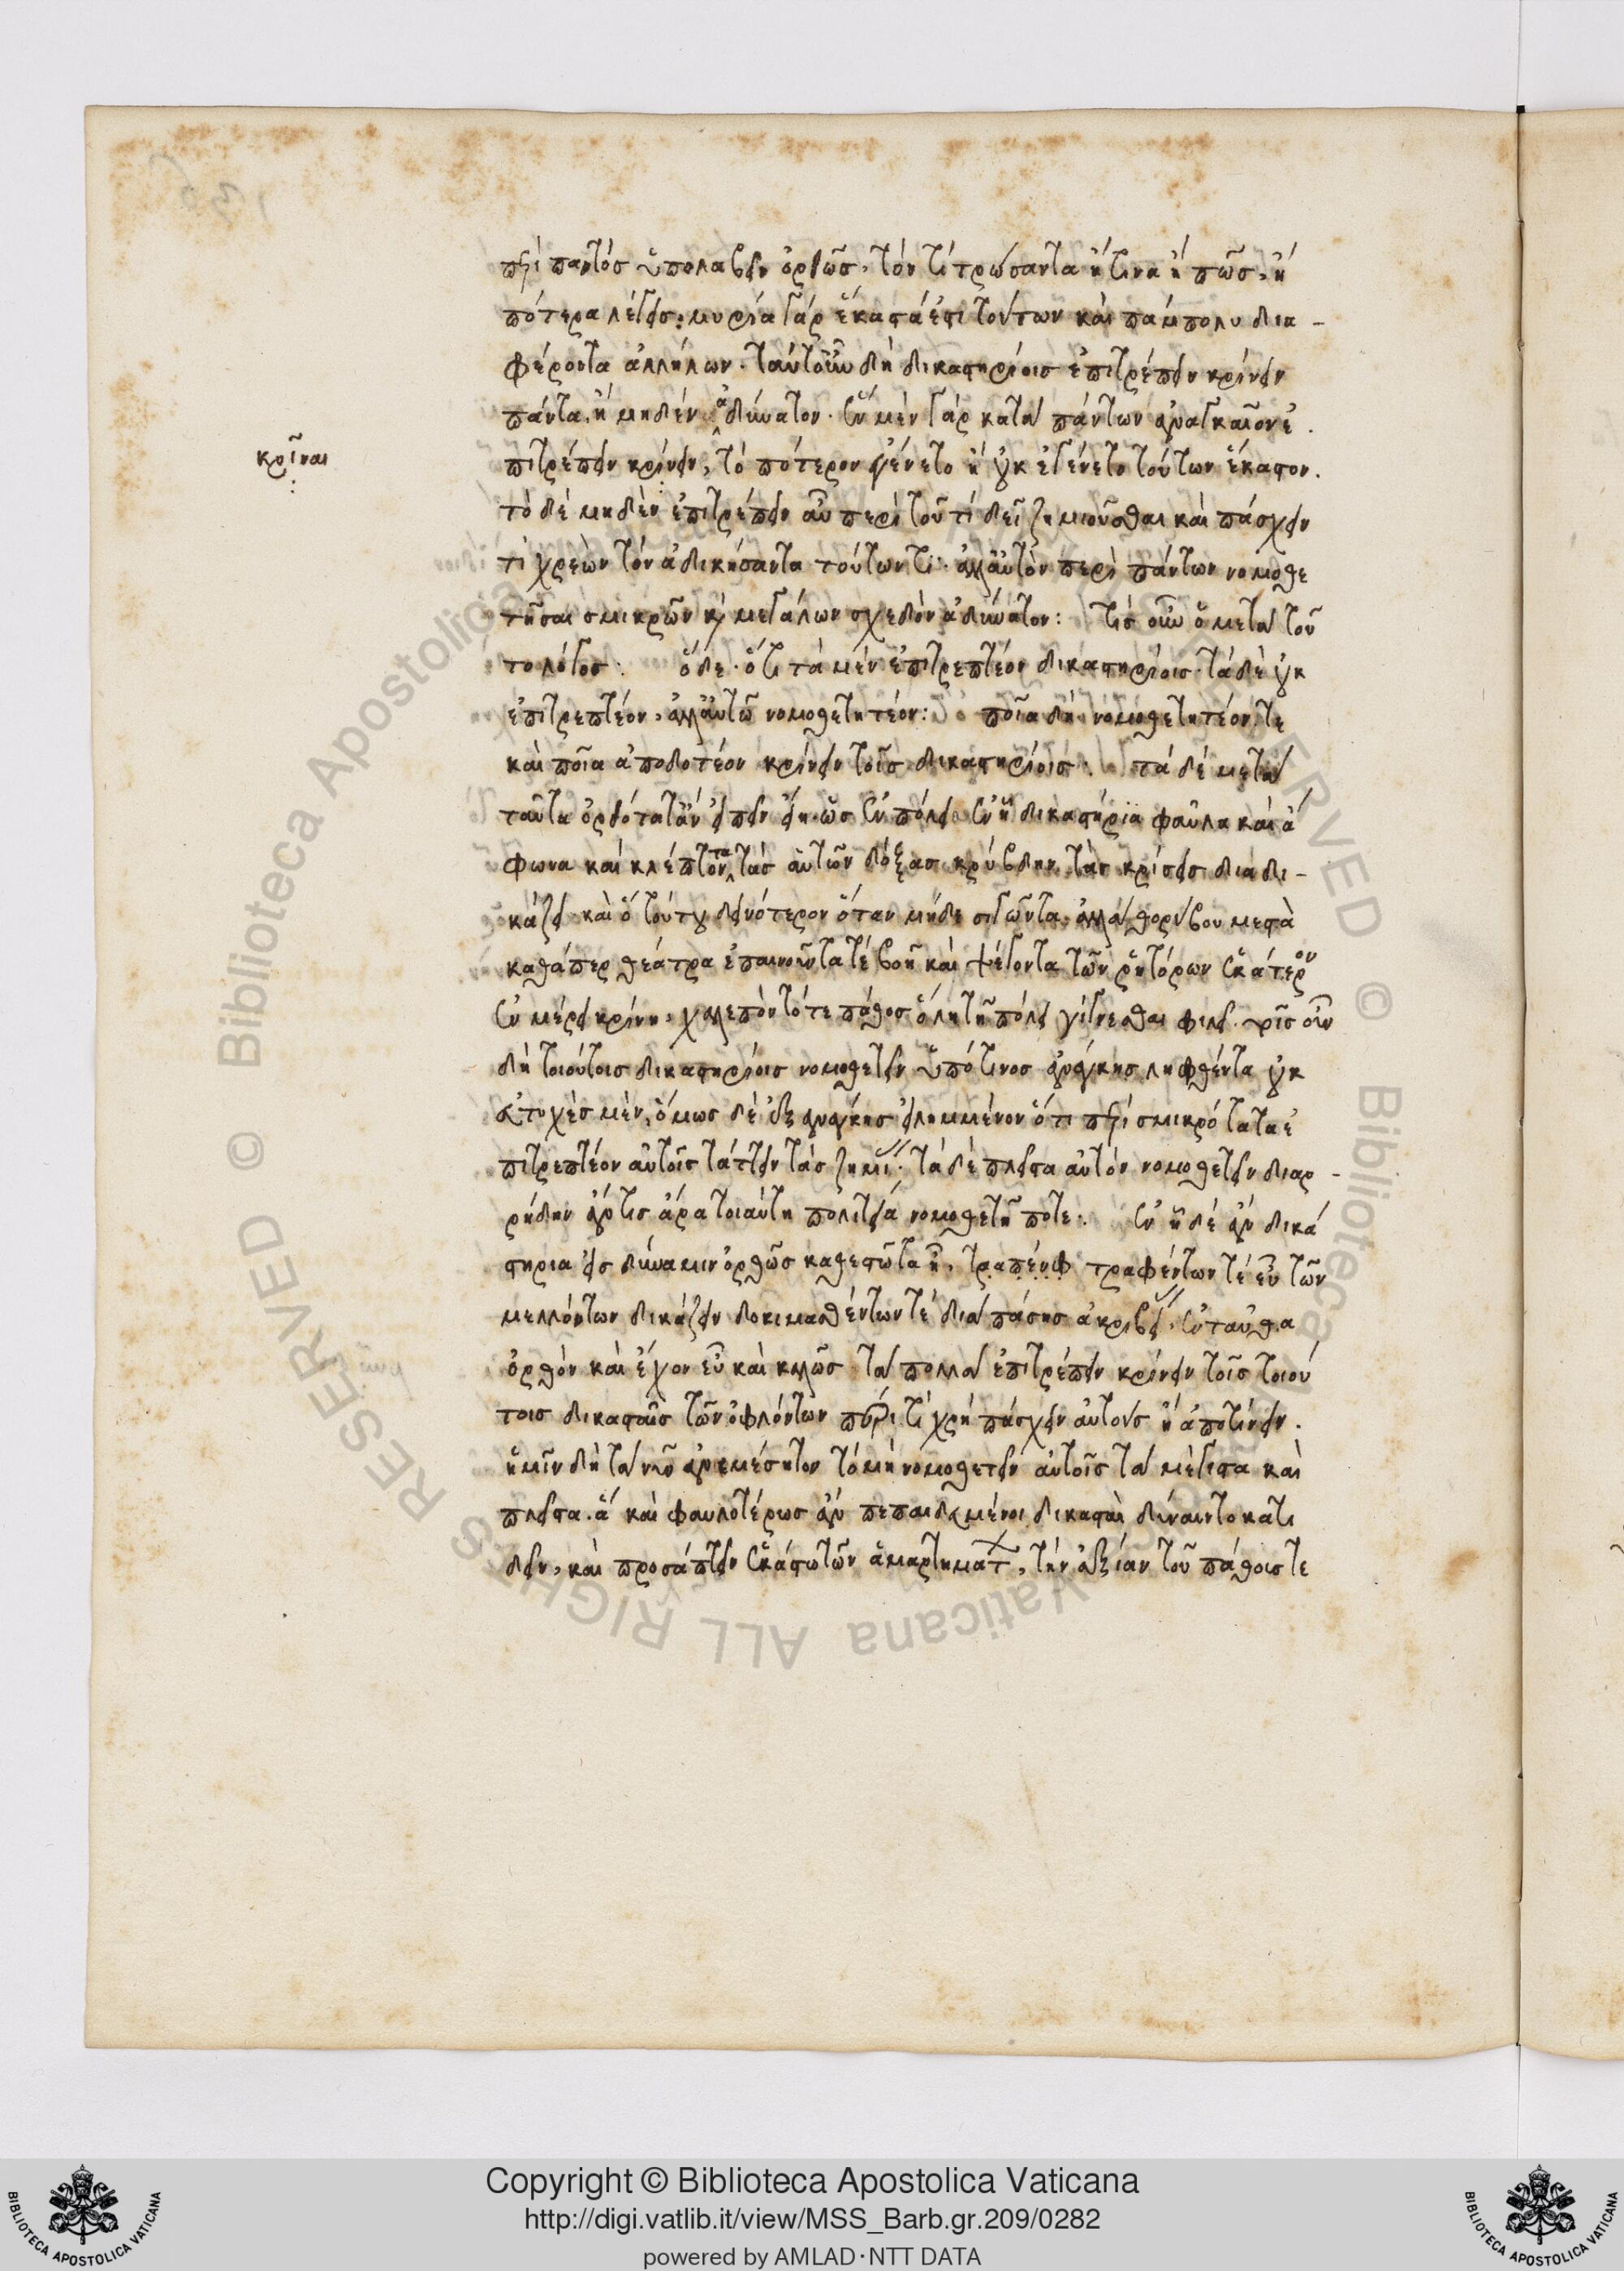 περὶ παντὸς ὑπολαβεῖν ὀρθῶς. τὸν τί τρώσαντα ἤ τινα ἢ πῶς. ἢ
πότερα λέγεις: μυρία γὰρ ἕκαστά ἐστι τούτων καὶ πάμπολυ δια-
φέροντα ἀλλήλων. ταῦτ' οὖν δὴ δικαστηρίοις ἐπιτρέπειν κρίνειν
πάντα, ἢ μηδὲν ἀδύνατον. ἓν μὲν γὰρ κατὰ πάντων ἀναγκαῖον ἐ
πιτρέπειν κρίνειν, τὸ πότερον γένετο ἢ οὐκ ἐγένετο τούτων ἕκαστον.
κρῖναι
τὸ δὲ μηδὲν ἐπιτρέπειν αὖ περὶ τοῦ τί δεῖ ζημιοῦσθαι καὶ πάσχειν
τί χρεὼν τὸν ἀδικήσαντα τούτων τι. ἀλλ' αὐτὸν περὶ πάντων νομοθε
τῆσαι σμικρῶν καὶ μεγάλων σχεδὸν ἀδύνατον: τίς οὖν ὁ μετὰ τοῦ
το λόγος. ὅδε. ὅτι τὰ μὲν ἐπιτρεπτέον δικαστηρίοις. τὰ δὲ οὐκ
ἐπιτρεπτέον, ἀλλ' αὐτῶ νομοθετητέον: ποῖα δὴ νομοθετητέον τε
καὶ ποῖα ἀποδοτέον κρίνειν τοῖς δικαστηρίοις: τὰ δὲ μετὰ
ταῦτα ὀρθότατ' ἂν εἰπεῖν εἴη. ὡς ἐν πόλει ἐν ᾗ δικαστήρια φαῦλα καὶ ἄ
φωνα καὶ κλέπτοντα τὰς αὑτῶν δόξας κρύβδην τὰς κρίσεις διαδι-
κάζει καὶ ὃ τούτου δεινότερον ὅταν μηδὲ σιγῶντα. ἀλλὰ θορύβου μεστὰ
καθάπερ θέατρα ἐπαινοῦντά τε βοῇ καὶ ψέγοντα τῶν ῥητόρων ἑκάτερον
ἐν μέρει κρίνη, χαλεπὸν τότε πάθος ὅλη τῇ πόλει γίγνεσθαι φιλεῖ. τοῖς οὖν
δὴ τοιούτοις δικαστηρίοις νομοθετεῖν ὑπό τινος ἀνάγκης ληφθέντα οὐκ
εὐτυχὲς μὲν, ὅμως δὲ ἐξ ἀνάγκης εἰλημμένον ὅτι περὶ σμικρότατα ἐ
πιτρεπτέον αὐτοῖς τάττειν τὰς ζημί. τὰ δὲ πλεῖστα αὐτὸν νομοθετεῖν διαρ-
ρήδην ἄν τις ἄρα τοιαύτη πολιτείᾳ νομοθετῇ ποτε. ἐν ᾗ δὲ ἂν δικα
στηρια εἰς δύναμιν ὀρθῶς καθεστῶτα ᾖ, τραπένφ τραφέντων τε εὖ τῶν
μελλόντων δικάζειν δοκιμασθέντων τε διὰ πάσης ἀκριβεί. ἐνταῦθα
ὀρθὸν καὶ ἔχον εὖ καὶ καλῶς τὰ πολλὰ ἐπιτρέπειν κρίνειν τοῖς τοιού
τοις δικασταῖς τῶν ὀφλόντων περὶ τί χρὴ πάσχειν αὐτοὺς ἢ ἀποτίνειν.
ἡμῖν δὴ τὰ νῦν ἀνεμέσητον τὸ μὴ νομοθετεῖν αὐτοῖς τὰ μέγιστα καὶ
πλεῖστα. ἃ καὶ φαυλοτέρως ἂν πεπαιδευμένοι δικασταὶ δύναιντο κατι
δεῖν, καὶ προσάπτειν ἑκάστω τῶν ἁμαρτημάτ, τὴν ἀξίαν τοῦ πάθους τε